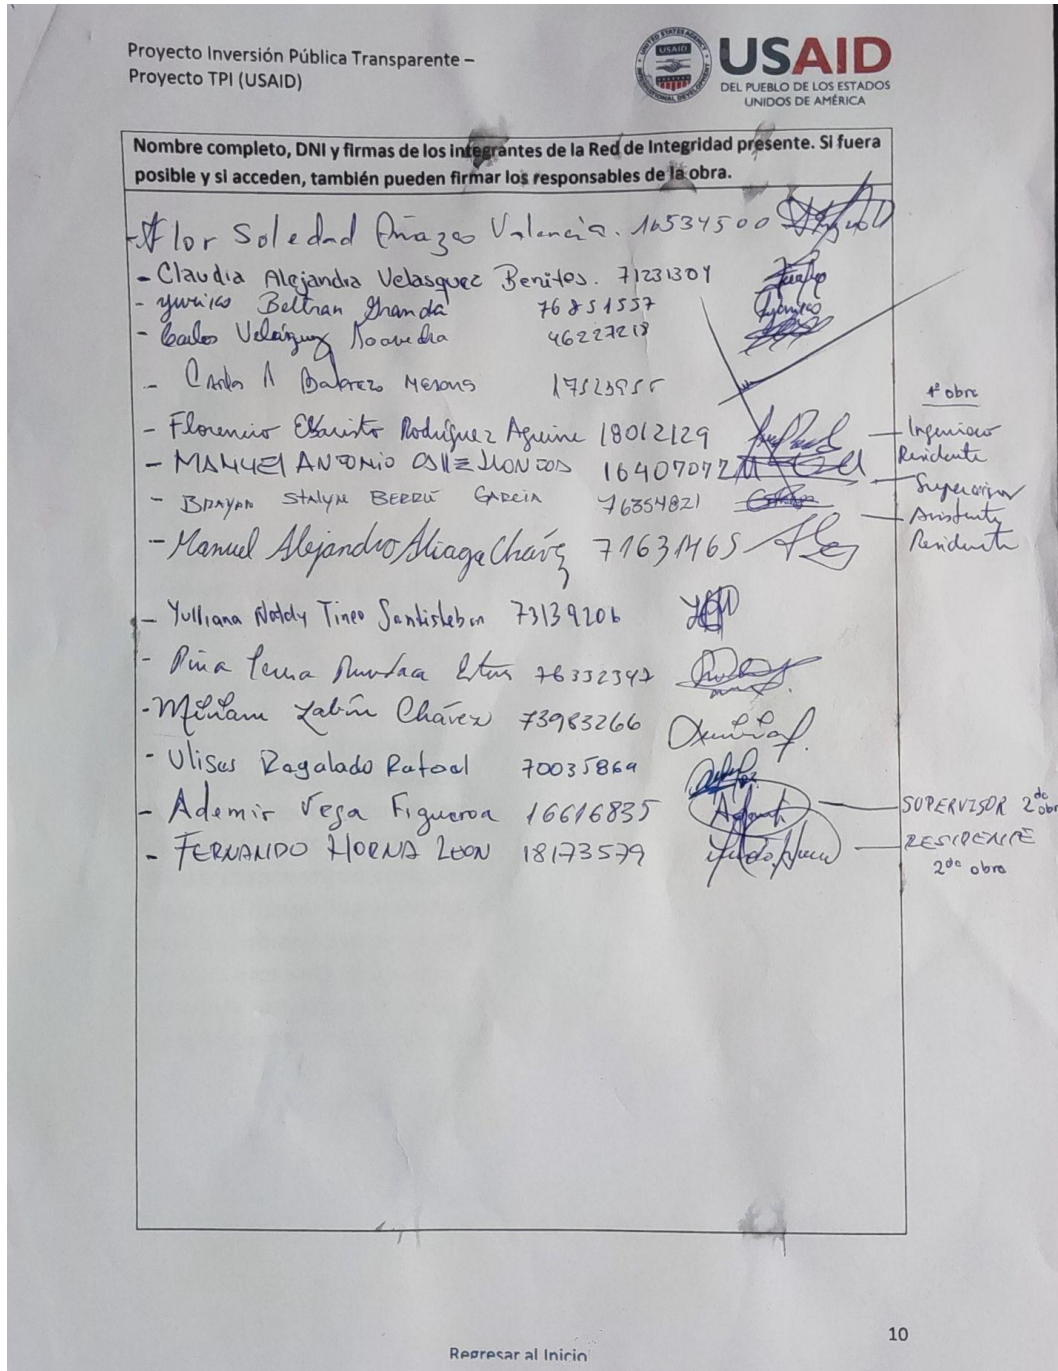 Proyecto Inversión Pública Transparente –
Proyecto TPI (USAID)
USAID
DEL PUEBLO DE LOS ESTADOS
UNIDOS DE AMÉRICA
Nombre completo, DNI y firmas de los integrantes de la Red de Integridad presente. Si fuera
posible y si acceden, también pueden firmar los responsables de la obra.
- Flor Soledad Añazco Valencia. 16534500
- Claudia Alejandra Velasquez Benites. 71231304
- Beltran Granda 76851557
- Carlos Velázquez 46227218
- Carlos A
1ª obra
- Florencio Evaristo Rodríguez Aguirre 18012129 — Ingeniero
Residente
- MANUEL ANTONIO 16407072 — Supervisor
- BRAYAN STALYN BERRÚ GARCIA 76354821 — Asistente
Residente
- Manuel Alejandro Aliaga Cháv
- Yulliana Naldy Tineo Santisteban 73139206
- 76332347
- Miriam Chávez 73983266
- Ulises Regalado Rafael 70035869
- Ademir Vega Figueroa 16616835 — SUPERVISOR 2da obra
- FERNANDO HORNA LEON 18173579 — RESIDENTE
2da obra
10
Regresar al Inicio